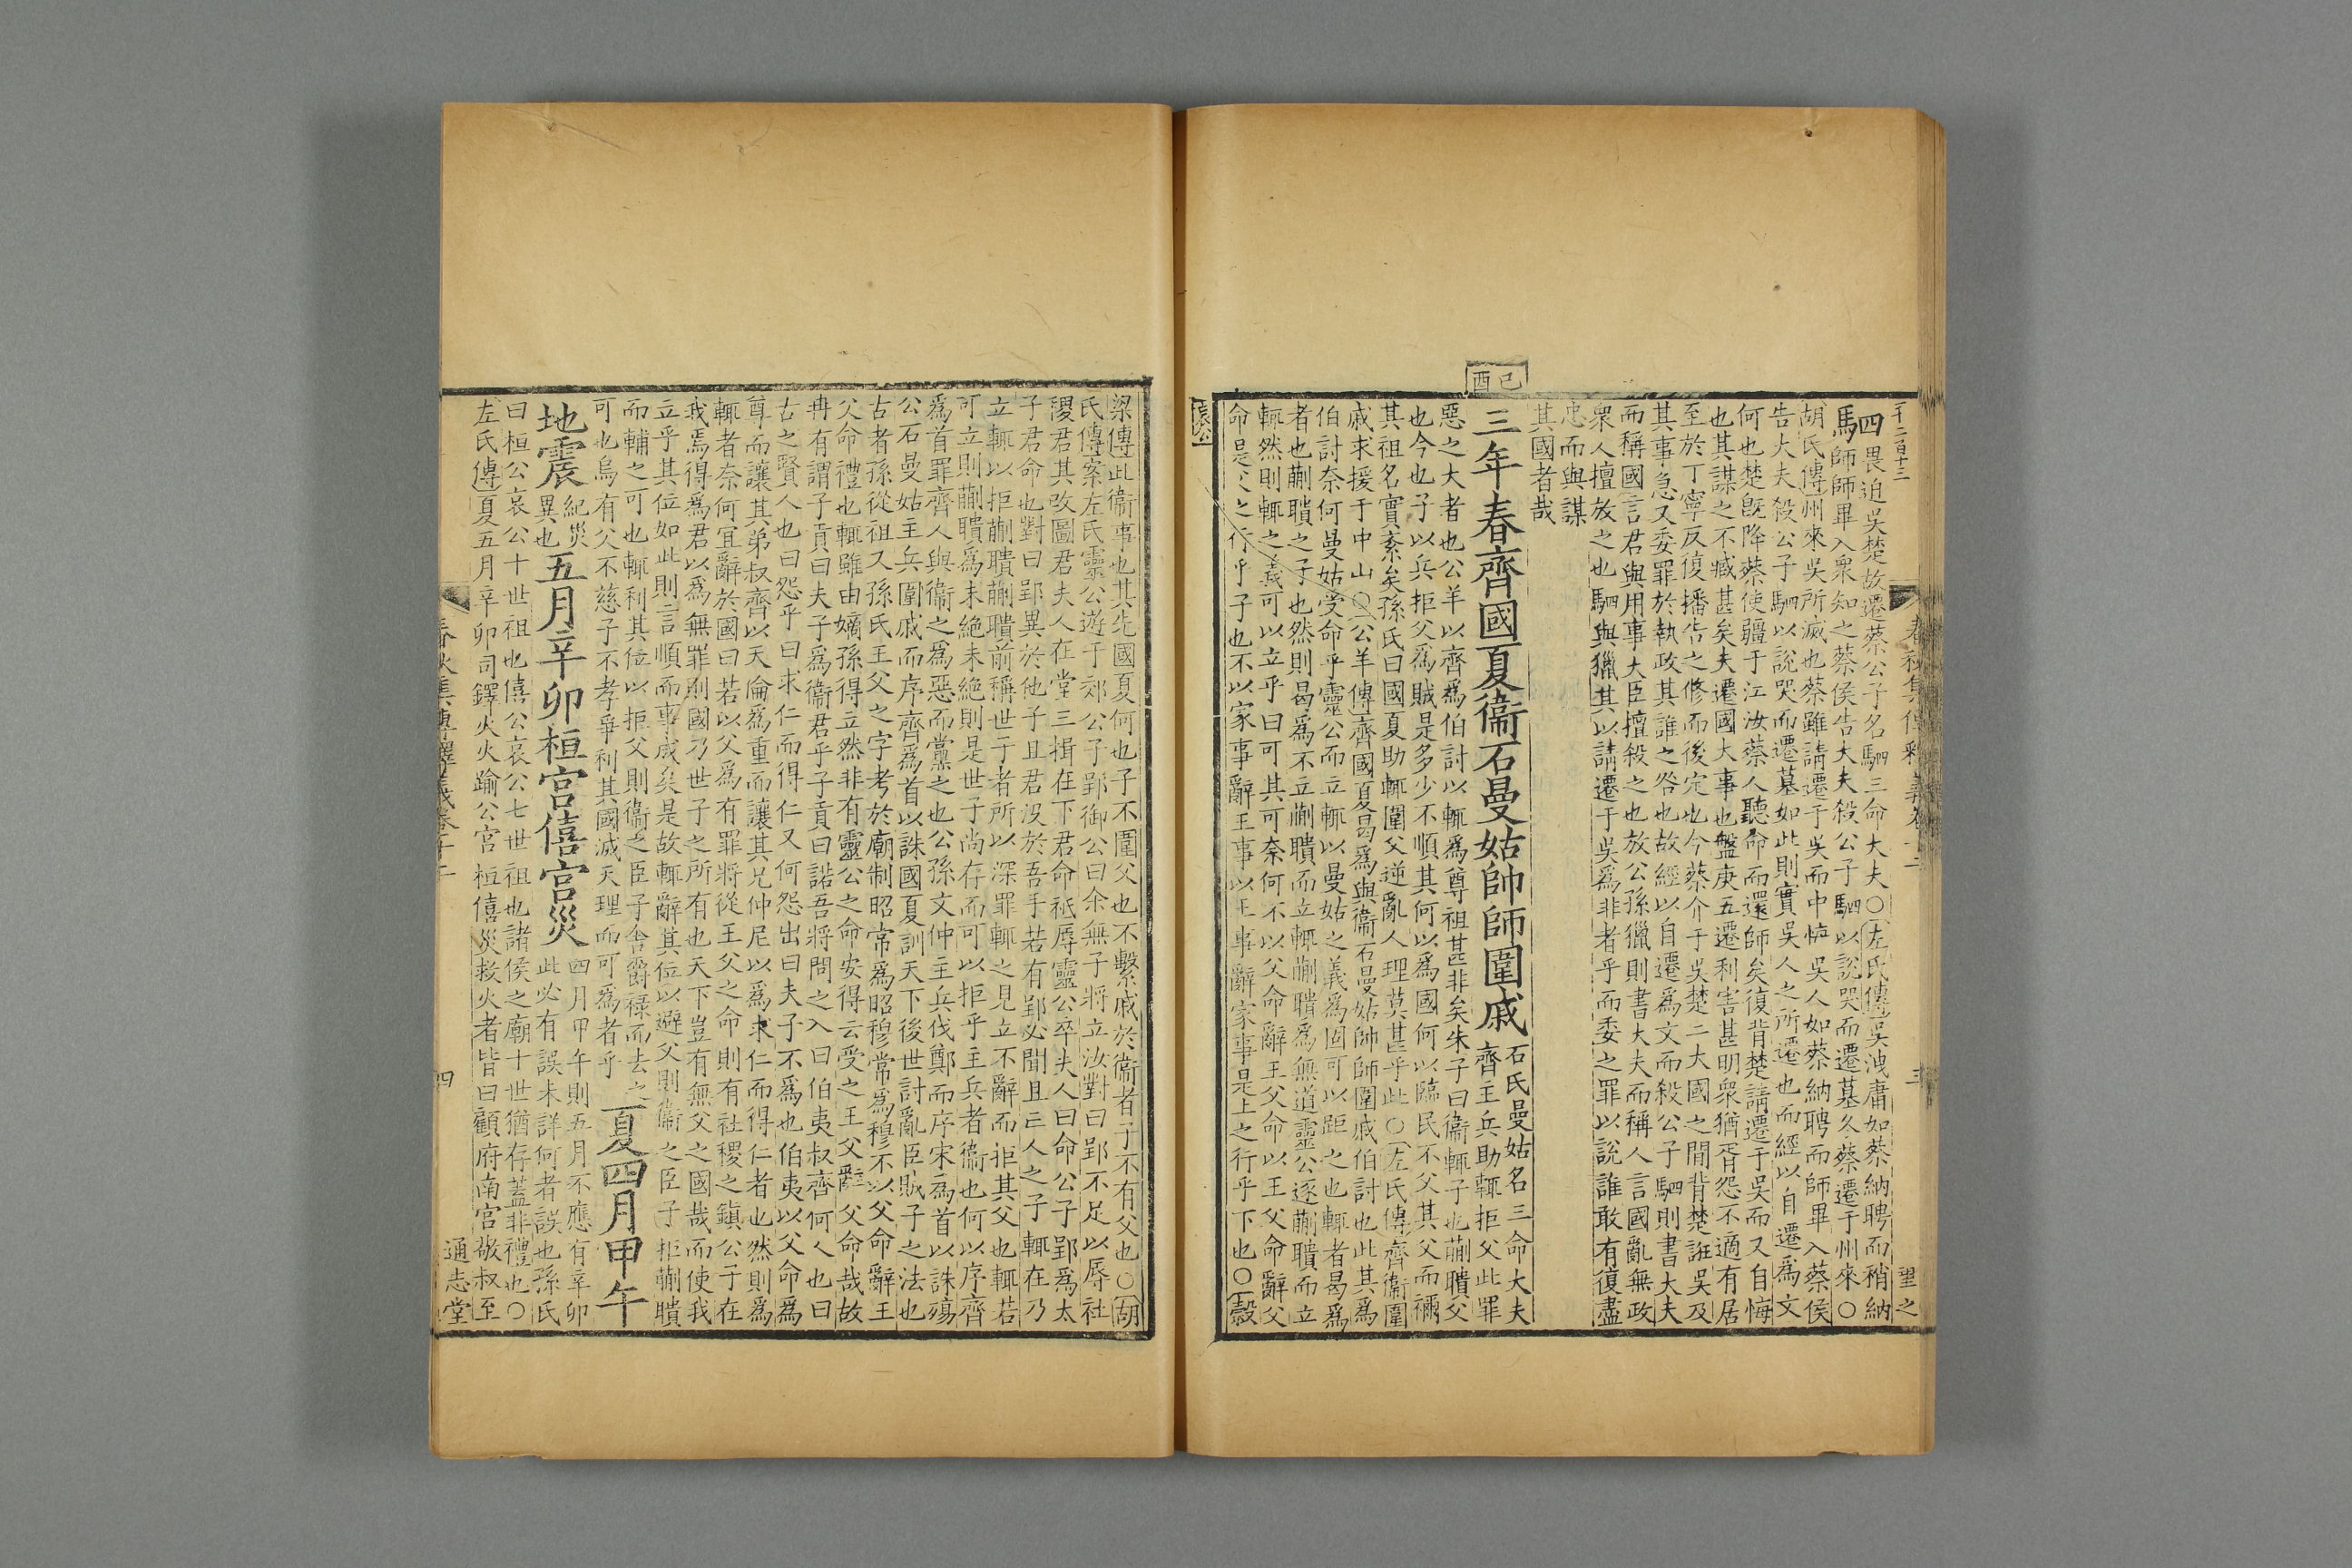 千二百十三
春秋集傳釋義卷十二
三
望之
四畏迫吳楚故遷蔡公子名駟三命大夫○左氏傳吳洩庸如蔡納聘而稍納
馬師師畢入衆知之蔡侯告大夫殺公子駟以說哭而遷墓冬蔡遷于州來○
胡氏傳州來吳所滅也蔡雖請遷于吳而中悔吳人如蔡納聘而師畢入蔡侯
告大夫殺公子駟以說哭而遷墓如此則實吳人之所遷也而經以自遷爲文
何也楚旣降蔡使疆于江汝蔡人聽命而還師矣復背楚請遷于吳而又自悔
也其謀之不臧甚矣夫遷國大事也盤庚五遷利害甚明衆猶胥怨不適有居
至於丁寧反復播告之修而後定也今蔡介于吳楚二大國之閒背楚誑吳及
其事急又委罪於執政其誰之咎也故經以自遷爲文而殺公子駟則書大夫
而稱國言君與用事大臣擅殺之也放公孫獵則書大夫而稱人言國亂無政
衆人擅放之也駟與獵其以請遷于吳爲非者乎而委之罪以說誰敢有復盡
忠而與謀
其國者哉
己酉
三年春齊國夏衞石曼姑帥師圍戚
石氏曼姑名三命大夫
齊主兵助輒拒父此罪
惡之大者也公羊以齊爲伯討以輒爲尊祖甚非矣朱子曰衞輒子也蒯聵父
也今也子以兵拒父爲賊是多少不順其何以爲國何以臨民不父其父而禰
其祖名實紊矣孫氏曰國夏助輒圍父逆亂人理莫甚乎此○左氏傳齊衞圍
戚求援于中山○公羊傳齊國夏曷爲與衞石曼姑帥師圍戚伯討也此其爲
伯討奈何曼姑受命乎靈公而立輒以曼姑之義爲固可以距之也輒者曷爲
者也蒯聵之子也然則曷爲不立蒯聵而立輒蒯聵爲無道靈公逐蒯聵而立
輒然則輒之義可以立乎曰可其可奈何不以父命辭王父命以王父命辭父
命是父之行乎子也不以家事辭王事以王事辭家事是上之行乎下也○穀
哀公
梁傳此衞事也其先國夏何也子不圍父也不繫戚於衞者子不有父也○胡
氏傳案左氏靈公遊于郊公子郢御公曰余無子將立汝對曰郢不足以辱社
稷君其改圖君夫人在堂三揖在下君命祗辱靈公卒夫人曰命公子郢爲太
子君命也對曰郢異於他子且君沒於吾手若有郢必聞且亡人之子輒在乃
立輒以拒蒯聵蒯聵前稱世子者所以深罪輒之見立不辭而拒其父也輒若
可立則蒯聵爲未絕未絕則是世子尚存而可以拒乎主兵者衞也何以序齊
爲首罪齊人與衞之爲惡而黨之也公孫文仲主兵伐鄭而序宋爲首以誅殤
公石曼姑主兵圍戚而序齊爲首以誅國夏訓天下後世討亂臣賊子之法也
古者孫從祖又孫氏王父之字考於廟制昭常爲昭穆常爲穆不以父命辭王
父命禮也輒雖由嫡孫得立然非有靈公之命安得云受之王父辭父命哉故
冉有謂子貢曰夫子爲衞君乎子貢曰諾吾將問之入曰伯夷叔齊何人也曰
古之賢人也曰怨乎曰求仁而得仁又何怨出曰夫子不爲也伯夷以父命爲
尊而讓其弟叔齊以天倫爲重而讓其兄仲尼以爲求仁而得仁者也然則爲
輒者奈何宜辭於國曰若以父爲有罪將從王父之命則有社稷之鎮公子在
我焉得爲君以爲無罪則國乃世子之所有也天下豈有無父之國哉而使我
立乎其位如此則言順而事成矣是故輒辭其位以避父則衞之臣子拒蒯聵
而輔之可也輒利其位以拒父則衞之臣子舍爵祿而去之
可也烏有父不慈子不孝爭利其國滅天理而可爲者乎
夏四月甲午
地震
紀災
異也
五月辛卯桓宮僖宮災
四月甲午則五月不應有辛卯
此必有誤未詳何者誤也孫氏
曰桓公哀公十世祖也僖公哀公七世祖也諸侯之廟十世猶存蓋非禮也○
左氏傳夏五月辛卯司鐸火火踰公宮桓僖災救火者皆曰顧府南宮敬叔至
春秋集傳釋義卷十二
四
通志堂